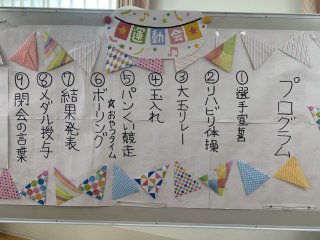 運動会
プログラム
①選手宣誓
②リハビリ体操
③大玉リレー
④玉入れ
⑤パンくい競走
☆おやつタイム
⑥ボーリング
⑦結果発表
⑧メダル授与
⑨閉会の言葉